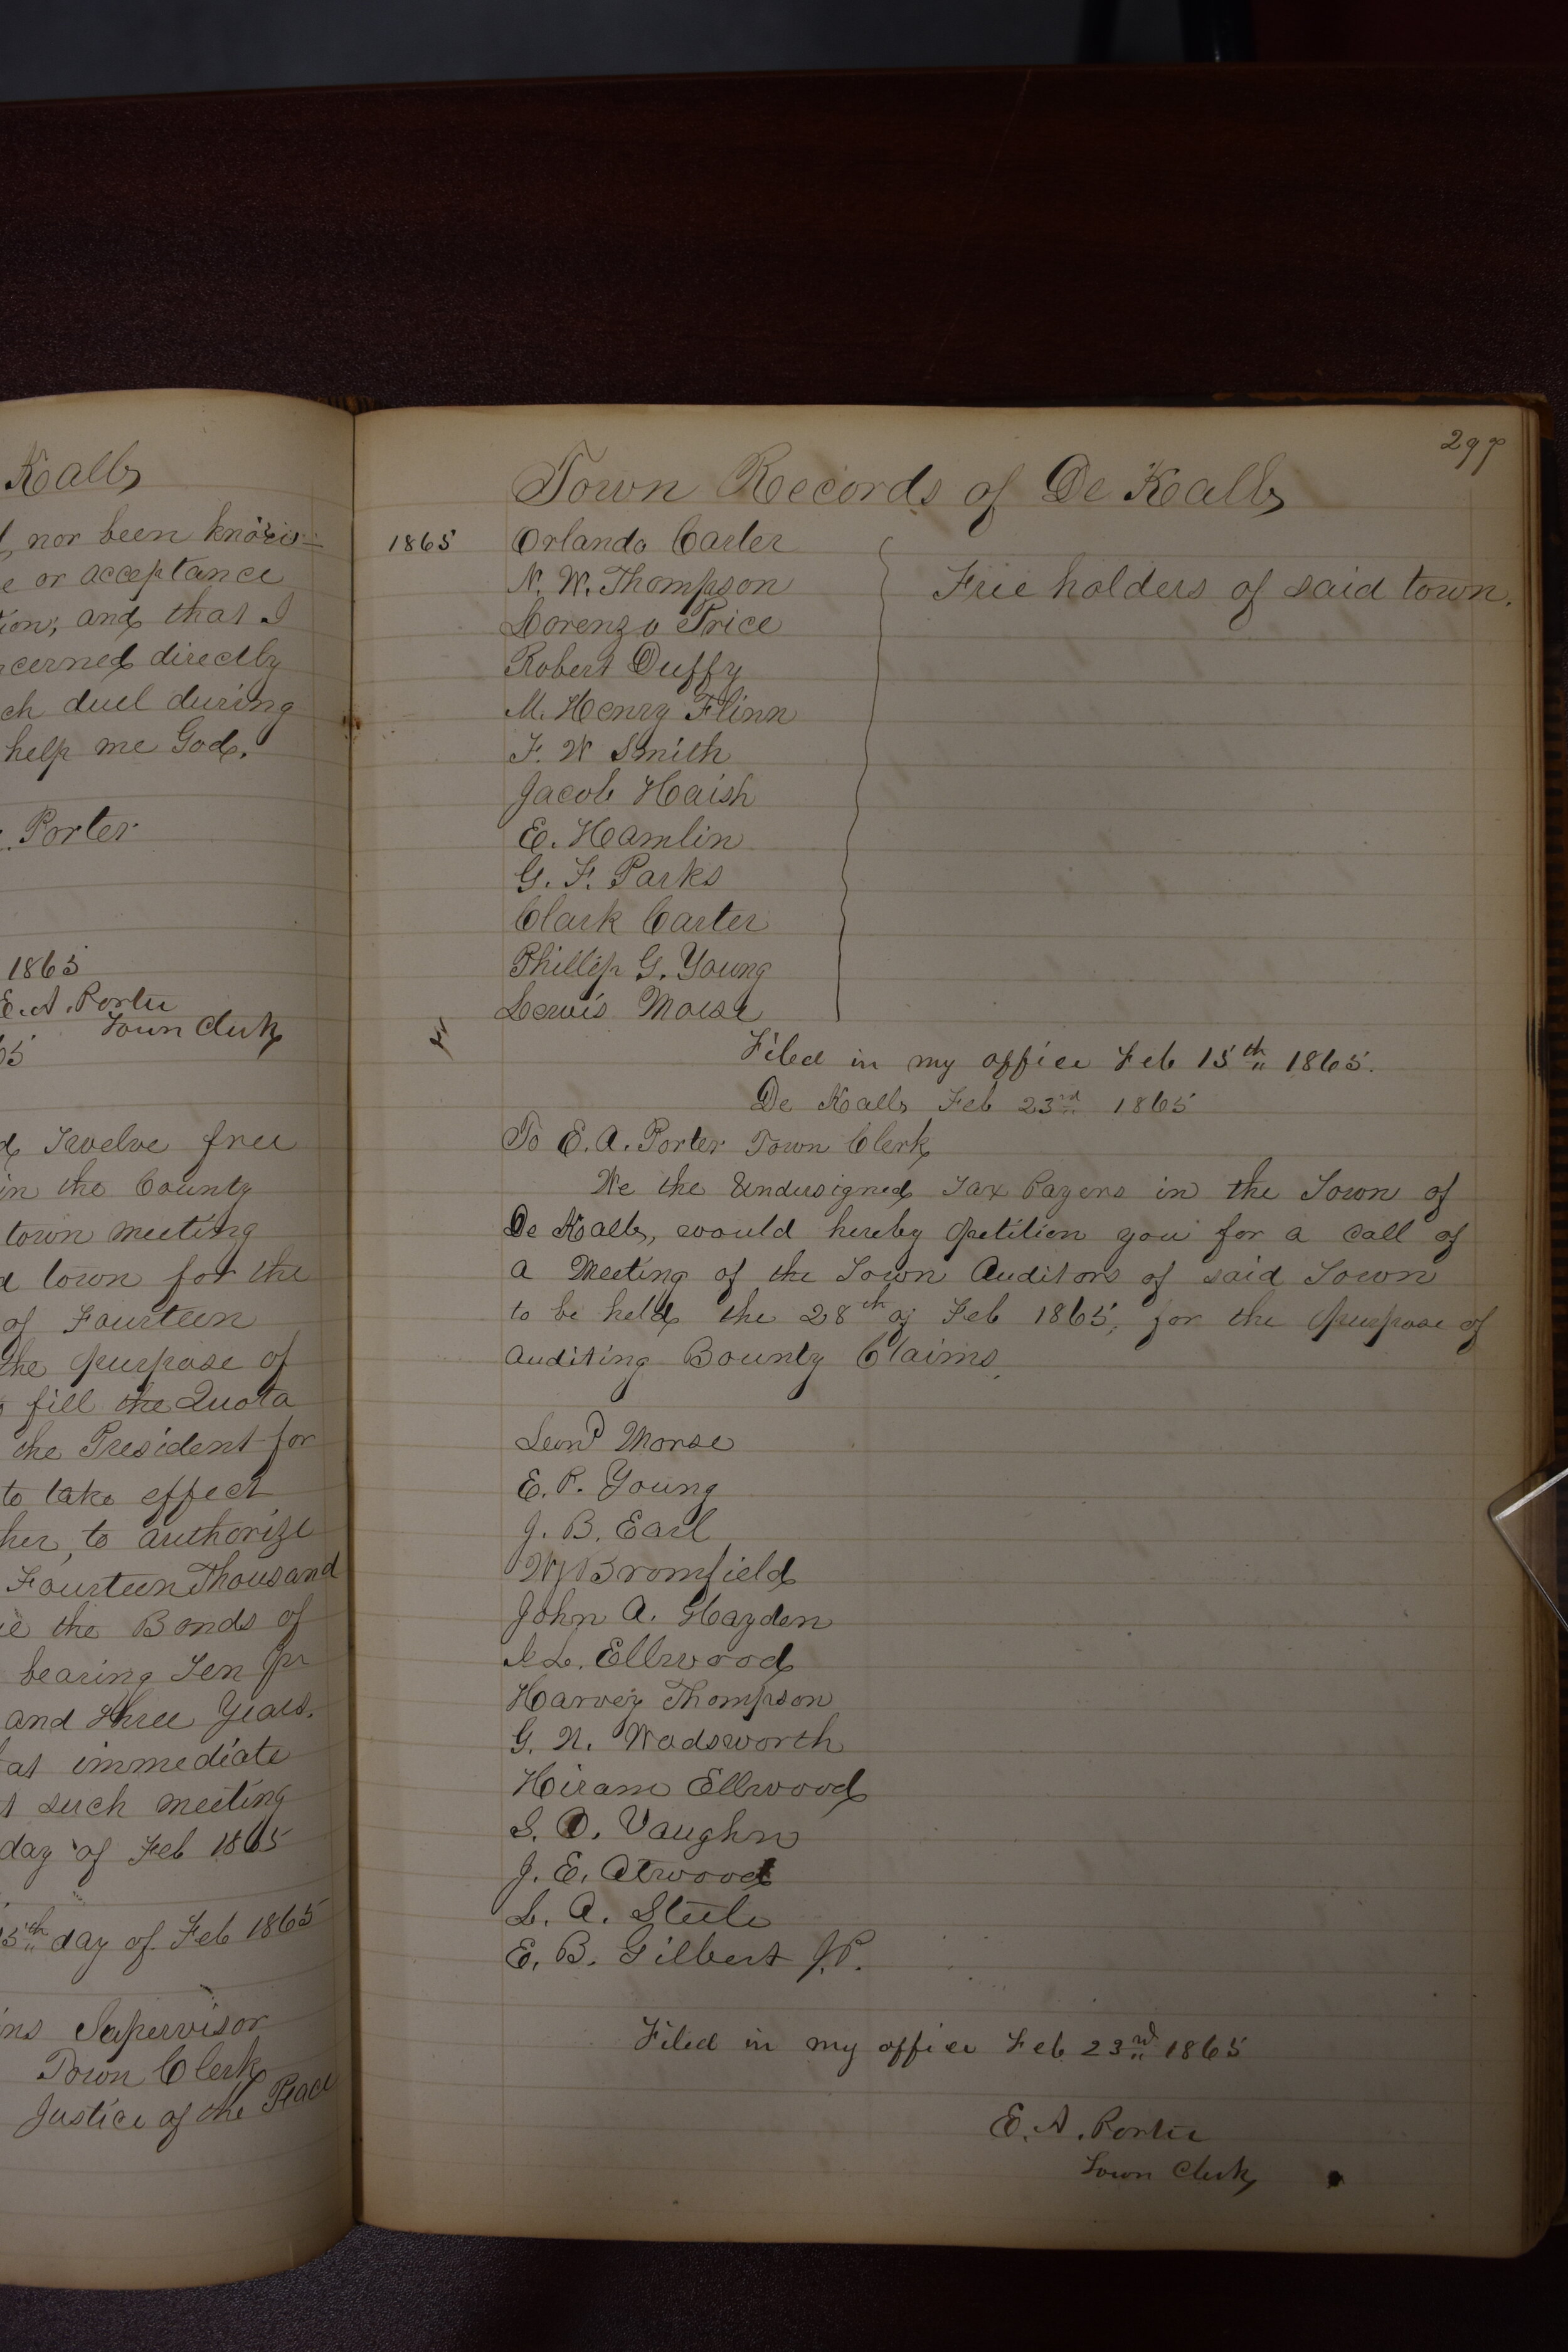 Kalb
nor been know-
e or acceptance
ion, and that I
cerned directly
ch duel during
help me God.
Porter
1865
E. A. Porter
Town Clerk
Twelve free
in the County
town meeting
town for the
of Fourteen
the purpose of
fill the Quota
the President for
to take effect
her, to authorize
Fourteen Thousand
the Bonds of
bearing Ten pr
and three Years.
at immediate
such meeting
day of Feb 1865
5th day of Feb 1865
ns Supervisor
Town Clerk
Justice of the Peace
297
Town Records of De Kalb
1865 Orlando Carter
N. W. Thompson
Free holders of said town.
Lorenzo Price
Robert Duffy
M. Henry Flinn
F. W Smith
Jacob Haish
E. Hamlin
G. F. Parks
Clark Carter
Phillip G. Young
Lewis Morse
Filed in my office Feb 15th 1865.
De Kalb Feb 23rd 1865
To E. A. Porter Town Clerk
We the Undersigned Tax Payers in the Town of
De Kalb, would hereby petition you for a call of
a Meeting of the Town Auditors of said Town
to be held the 28th of Feb 1865, for the purpose of
auditing Bounty Claims.
Leond Morse
E. P. Young
J. B. Earl
Bromfield
John A. Hayden
I. L. Ellwood
Harvey Thompson
G. N. Wadsworth
Hiram Ellwood
S. O. Vaughn
J. E. Atwood
L. A. Steele
E. B. Gilbert J.P.
Filed in my office Feb 23rd 1865
E. A. Porter
Town Clerk